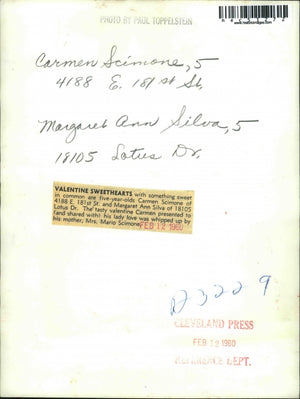 PHOTO BY PAUL TOPPELSTEIN
Carmen Scimone, 5
4188 E. 181 st St.
Margaret Ann Silva, 5
18105 Lotus Dr.
VALENTINE SWEETHEARTS with something sweet
in common are five-year-olds Carmen Scimone of
4188 E. 181st St. and Margaret Ann Silva of 18105
Lotus Dr. The tasty valentine Carmen presented to
(and shared with) his lady love was whipped up by
his mother, Mrs. Mario Scimone.
FEB 12 1960
CLEVELAND PRESS
FEB 12 1960
REFERENCE DEPT.